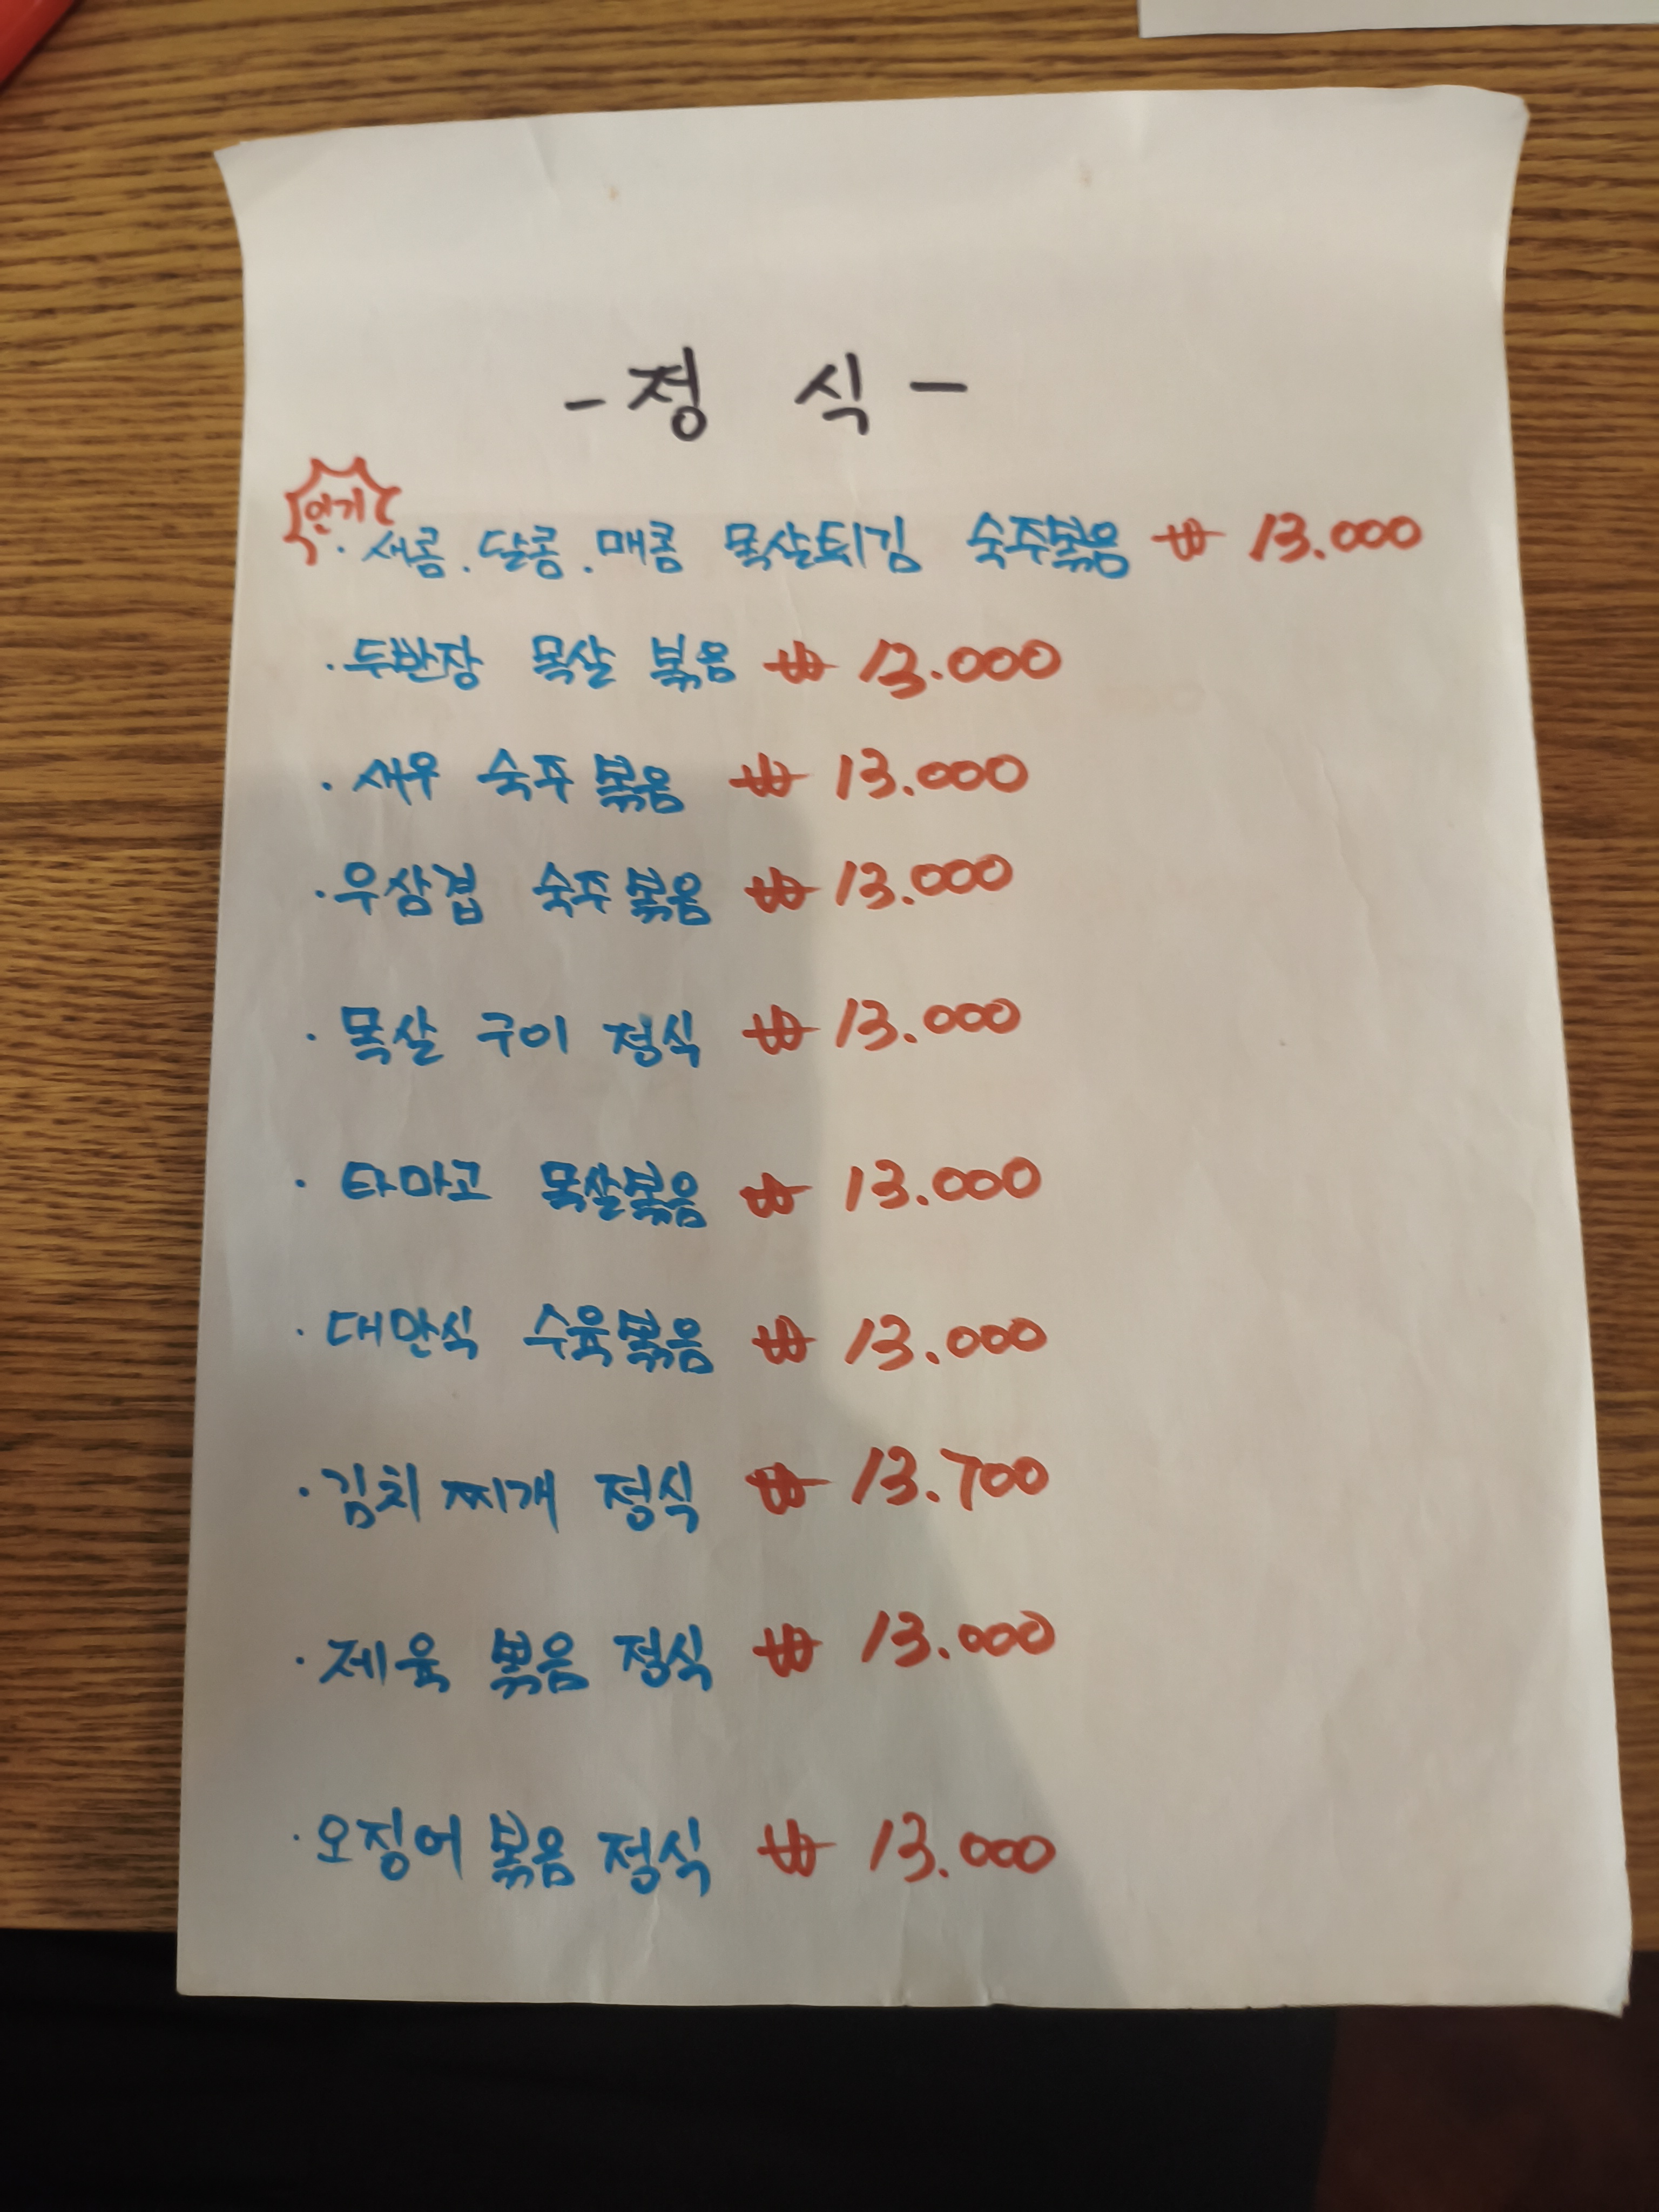 - 정 식 -
인기
· 새콤.달콤.매콤 목살튀김 숙주볶음 ₩ 13.000
· 두반장 목살 볶음 ₩ 13.000
· 새우 숙주볶음 ₩ 13.000
· 우삼겹 숙주볶음 ₩ 13.000
· 목살 구이 정식 ₩ 13.000
· 타마고 목살볶음 ₩ 13.000
· 대만식 수육볶음 ₩ 13.000
· 김치찌개 정식 ₩ 13.700
· 제육 볶음 정식 ₩ 13.000
· 오징어 볶음 정식 ₩ 13.000